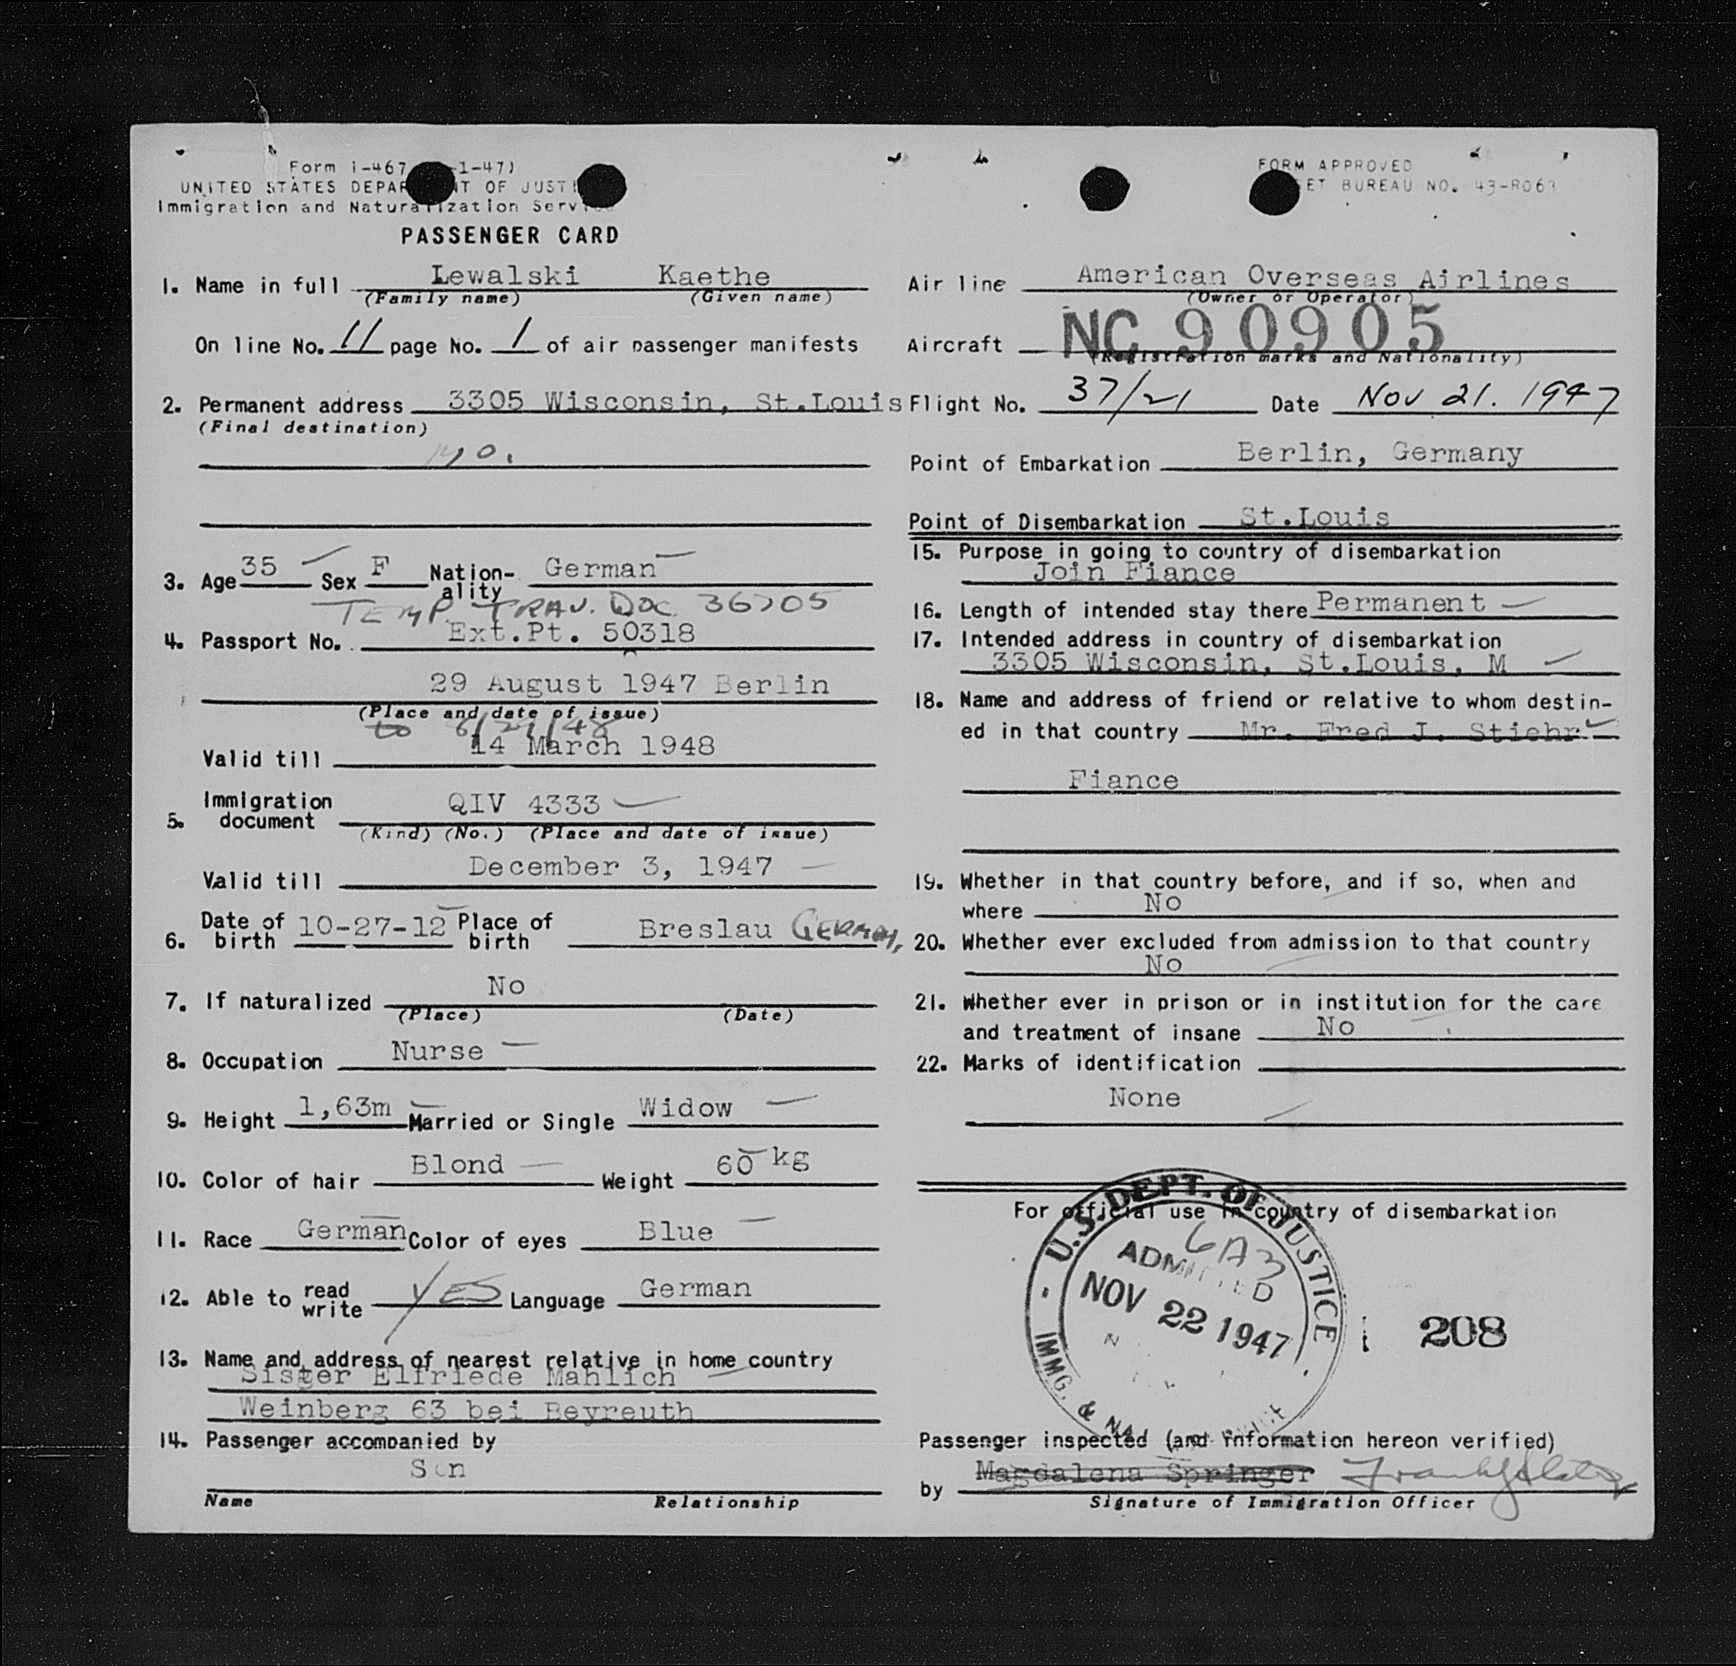 Form I-467 -1-47)
UNITED STATES DEPAR T OF JUST
Immigration and Naturalization Serv
PASSENGER CARD
1. Name in full Lewalski Kaethe
(Family name) (Given name)
On line No. 11 page No. 1 of air passenger manifests
2. Permanent address 3305 Wisconsin, St.Louis
(Final destination)
Mo.
3. Age 35 Sex F Nation-ality German
TEMP. TRAV. DOC 36705
4. Passport No. Ext.Pt. 50318
29 August 1947 Berlin
(Place and date of issue)
to 8/29/48
Valid till 14 March 1948
5. Immigration document QIV 4333
(Kind) (No.) (Place and date of issue)
Valid till December 3, 1947
6. Date of birth 10-27-12 Place of birth Breslau GERMANY
7. If naturalized No
(Place) (Date)
8. Occupation Nurse
9. Height 1,63m Married or Single Widow
10. Color of hair Blond Weight 60 kg
11. Race German Color of eyes Blue
12. Able to read write YES Language German
13. Name and address of nearest relative in home country
Sister Elfriede Mahlich
Weinberg 63 bei Beyreuth
14. Passenger accompanied by
Son
Name Relationship
FORM APPROVED
ET BUREAU NO. 43-R063
Air line American Overseas Airlines
(Owner or Operator)
Aircraft NC 90905
(Registration marks and Nationality)
Flight No. 37/21 Date Nov 21. 1947
Point of Embarkation Berlin, Germany
Point of Disembarkation St.Louis
15. Purpose in going to country of disembarkation
Join Fiance
16. Length of intended stay there Permanent
17. Intended address in country of disembarkation
3305 Wisconsin, St.Louis, M
18. Name and address of friend or relative to whom destin-
ed in that country Mr. Fred J. Stiehr
Fiance
19. Whether in that country before, and if so, when and
where No
20. Whether ever excluded from admission to that country
No
21. Whether ever in prison or in institution for the care
and treatment of insane No
22. Marks of identification
None
For official use in country of disembarkation
U.S. DEPT. OF JUSTICE
6A3
ADMITTED
NOV 22 1947
IMMG. & NA
208
Passenger inspected (and information hereon verified)
by Magdalena Springer
Signature of Immigration Officer